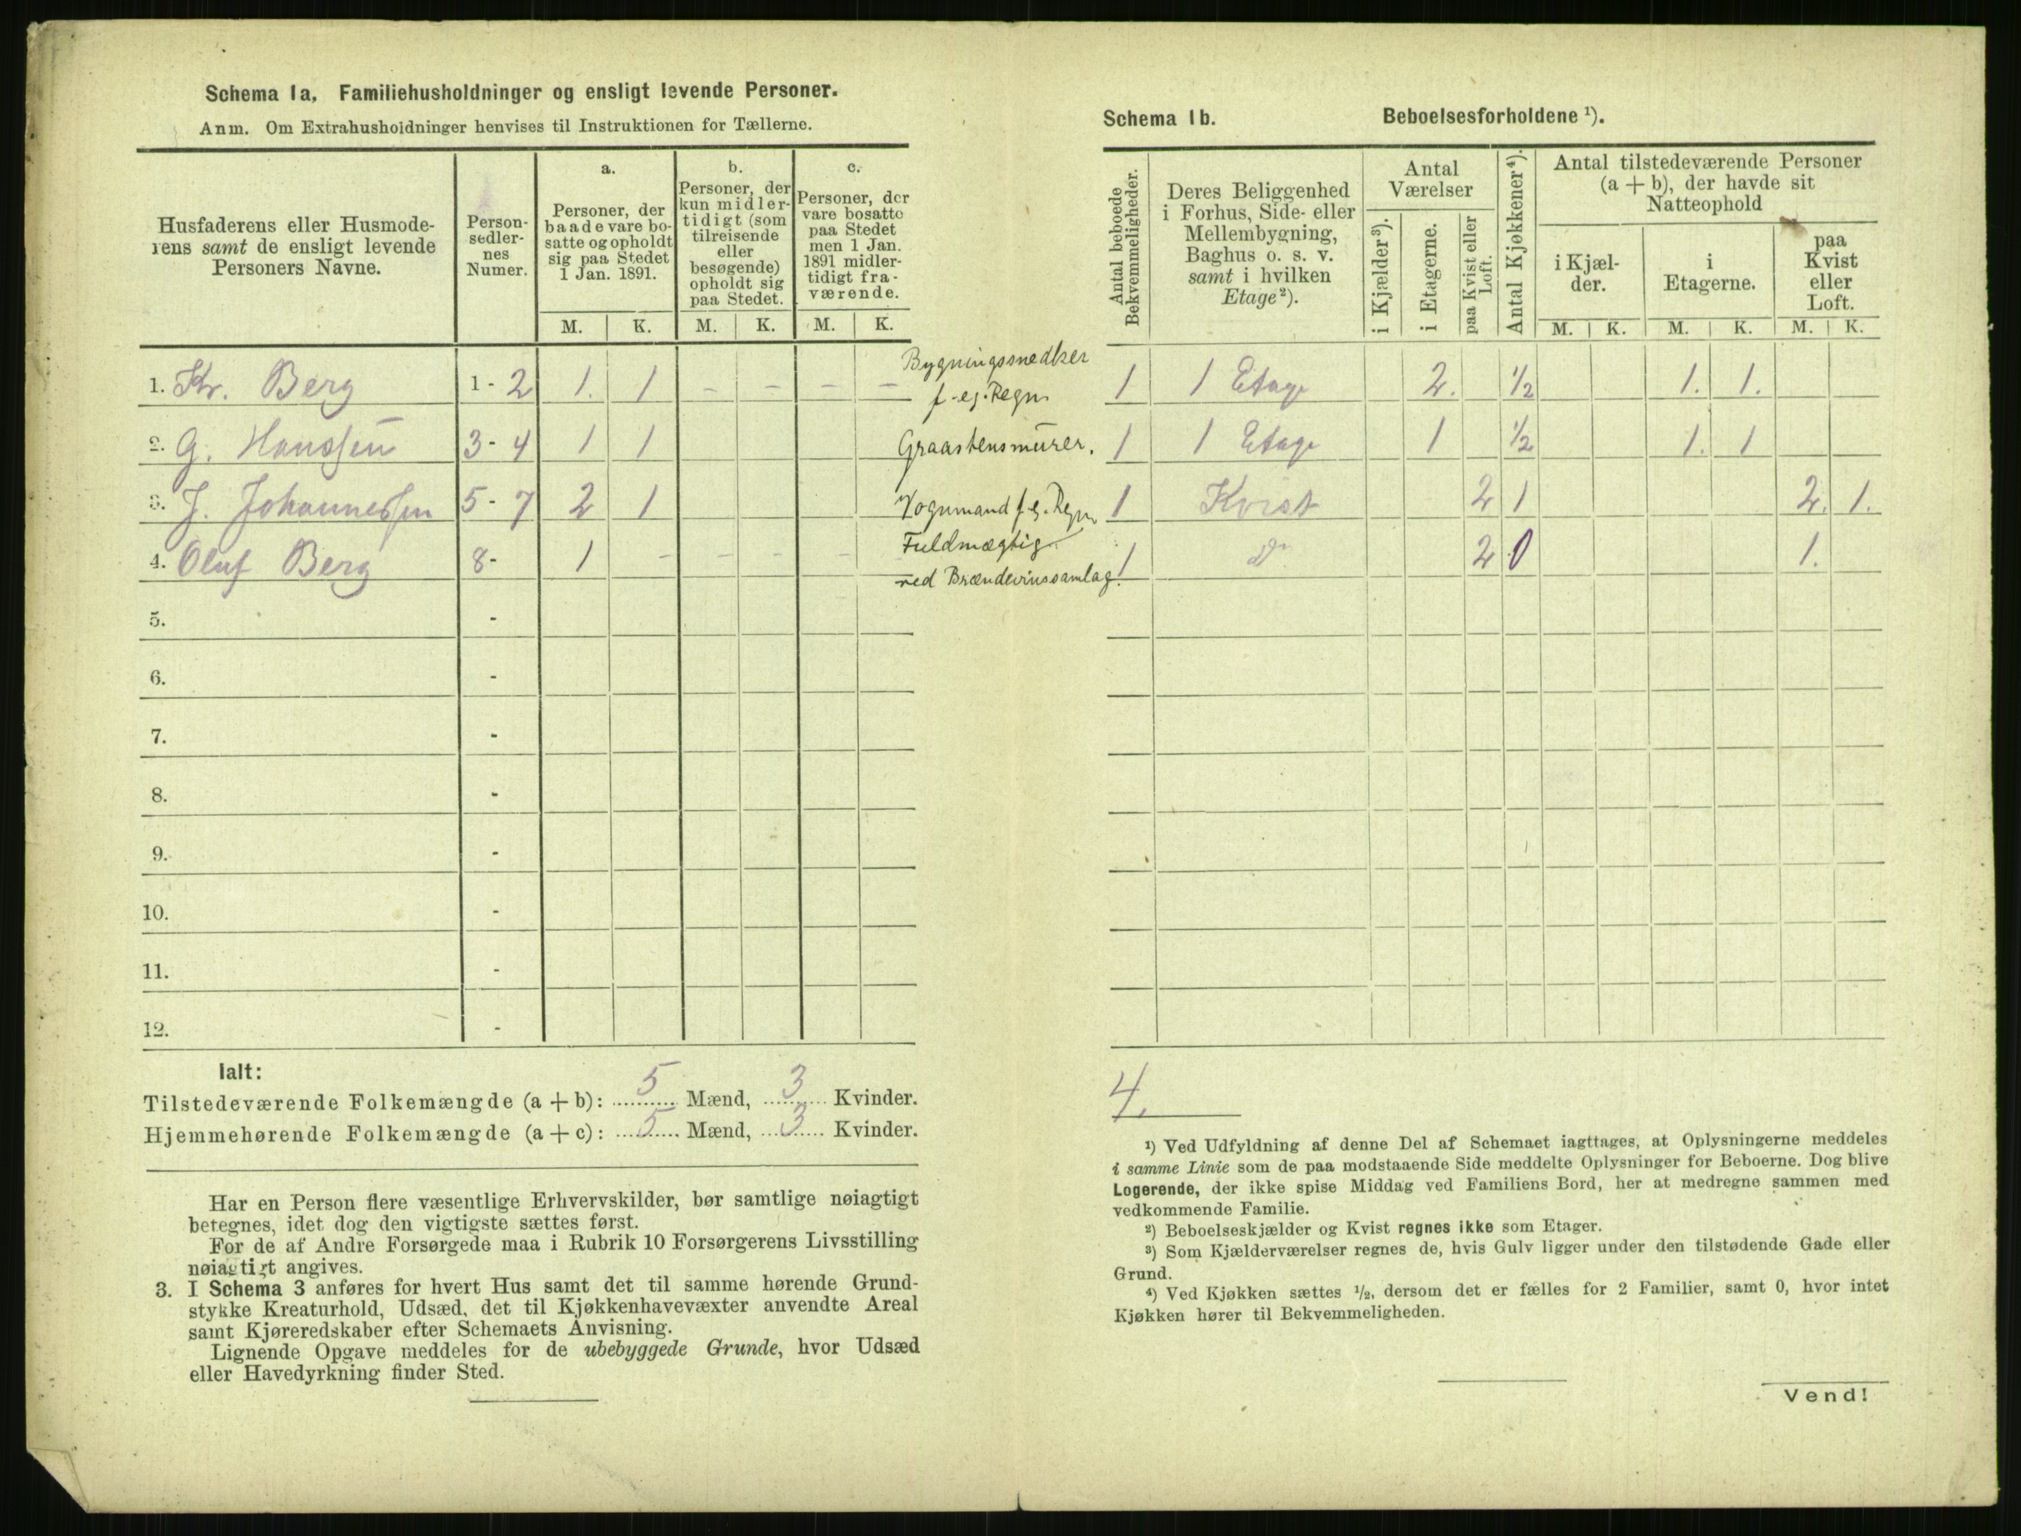 Schema 1a. Familiehusholdninger og ensligt levende Personer.
Anm. Om Extrahusholdninger henvises til Instruktionen for Tællerne.
Husfaderens eller Husmoderens samt de ensligt levende Personers Navne.
Personsedlernes Numer.
a.
Personer, der baade vare bosatte og opholdt sig paa Stedet 1 Jan. 1891.
b.
Personer, der kun midlertidigt (som tilreisende eller besøgende) opholdt sig paa Stedet.
c.
Personer, der vare bosatte paa Stedet men 1 Jan. 1891 midlertidigt fraværende.
M. K. M. K. M. K.
1. Kr. Berg 1 - 2 1. 1 - - - - Bygningssnedker
f. eg. Regn.
2. G. Hanssen 3 - 4 1 1 Graastensmurer.
3. J. Johannessen 5 - 7 2 1 Vognmand f. eg. Regn
4. Oluf Berg 8 - 1 - - - - Fuldmægtig
ved Brændevinssamlag.
5. -
6. -
7. -
8. -
9. -
10. -
11. -
12. -
Ialt:
Tilstedeværende Folkemængde (a + b): 5 Mænd, 3 Kvinder.
Hjemmehørende Folkemængde (a + c): 5 Mænd, 3 Kvinder.
Har en Person flere væsentlige Erhvervskilder, bør samtlige nøiagtigt
betegnes, idet dog den vigtigste sættes først.
For de af Andre Forsørgede maa i Rubrik 10 Forsørgerens Livsstilling
nøiagtigt angives.
3. I Schema 3 anføres for hvert Hus samt det til samme hørende Grund-
stykke Kreaturhold, Udsæd, det til Kjøkkenhavevæxter anvendte Areal
samt Kjøreredskaber efter Schemaets Anvisning.
Lignende Opgave meddeles for de ubebyggede Grunde, hvor Udsæd
eller Havedyrkning finder Sted.
Schema 1b. Beboelsesforholdene ¹).
Antal beboede Bekvemmeligheder.
Deres Beliggenhed i Forhus, Side- eller Mellembygning, Baghus o. s. v. samt i hvilken Etage²).
Antal Værelser
i Kjælder³).
i Etagerne.
paa Kvist eller Loft.
Antal Kjøkkener⁴).
Antal tilstedeværende Personer (a + b), der havde sit Natteophold
i Kjælder.
i Etagerne.
paa Kvist eller Loft.
M. K. M. K. M. K.
1 1 Etage 2. ½ 1. 1.
1 1 Etage 1 ½ 1. 1
1 Kvist 2 1 2. 1.
1 Do 2 0 1.
4.
¹) Ved Udfyldning af denne Del af Schemaet iagttages, at Oplysningerne meddeles
i samme Linie som de paa modstaaende Side meddelte Oplysninger for Beboerne. Dog blive
Logerende, der ikke spise Middag ved Familiens Bord, her at medregne sammen med
vedkommende Familie.
²) Beboelseskjælder og Kvist regnes ikke som Etager.
³) Som Kjælderværelser regnes de, hvis Gulv ligger under den tilstødende Gade eller
Grund.
⁴) Ved Kjøkken sættes ½, dersom det er fælles for 2 Familier, samt 0, hvor intet
Kjøkken hører til Bekvemmeligheden.
Vend!